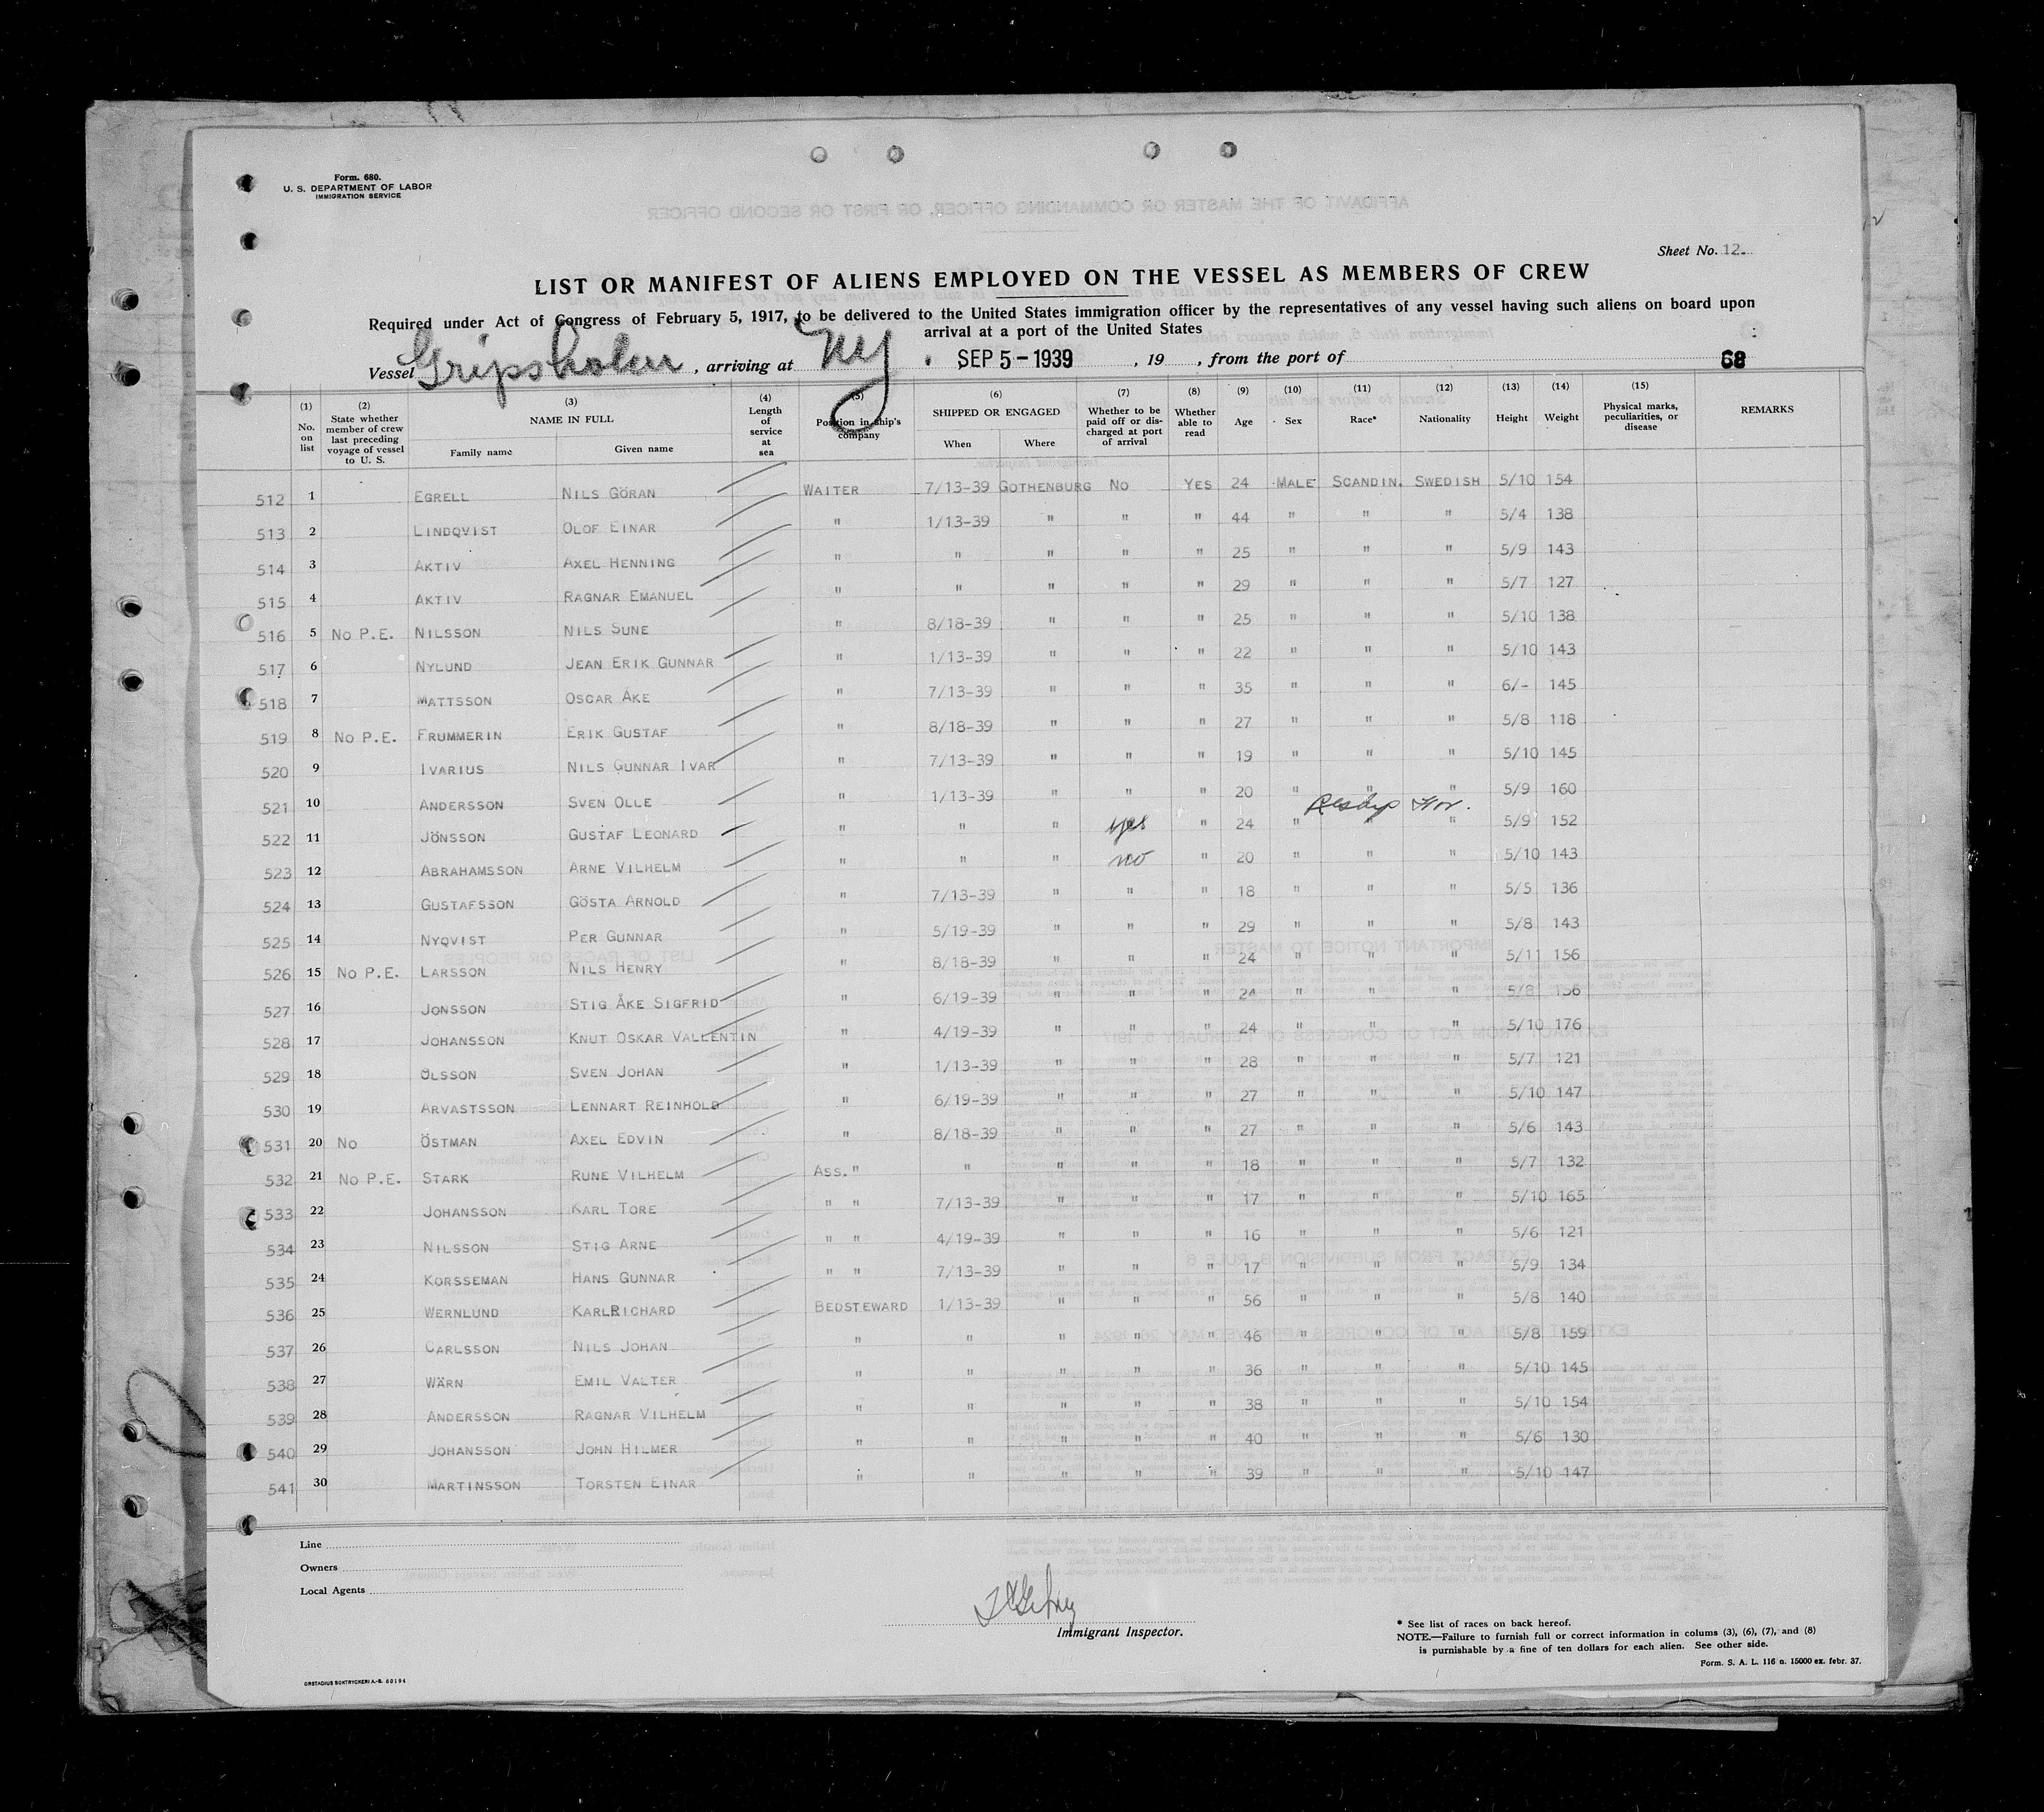 Form. 680.
U. S. DEPARTMENT OF LABOR
IMMIGRATION SERVICE
Sheet No. 12.
LIST OR MANIFEST OF ALIENS EMPLOYED ON THE VESSEL AS MEMBERS OF CREW
Required under Act of Congress of February 5, 1917, to be delivered to the United States immigration officer by the representatives of any vessel having such aliens on board upon
arrival at a port of the United States
Vessel Gripsholm , arriving at NY . SEP 5-1939 , 19 , from the port of 68
(1) No. on list (2) State whether member of crew last preceding voyage of vessel to U. S. (3) NAME IN FULL Family name Given name (4) Length of service at sea (5) Position in ship's company (6) SHIPPED OR ENGAGED When Where (7) Whether to be paid off or discharged at port of arrival (8) Whether able to read (9) Age (10) Sex (11) Race* (12) Nationality (13) Height (14) Weight (15) Physical marks, peculiarities, or disease REMARKS
512 1 EGRELL NILS GÖRAN WAITER 7/13-39 GOTHENBURG NO YES 24 MALE SCANDIN. SWEDISH 5/10 154
513 2 LINDQVIST OLOF EINAR " 1/13-39 " " " 44 " " " 5/4 138
514 3 AKTIV AXEL HENNING " " " " " 25 " " " 5/9 143
515 4 AKTIV RAGNAR EMANUEL " " " " " 29 " " " 5/7 127
516 5 NO P.E. NILSSON NILS SUNE " 8/18-39 " " " 25 " " " 5/10 138
517 6 NYLUND JEAN ERIK GUNNAR " 1/13-39 " " " 22 " " " 5/10 143
518 7 MATTSSON OSCAR ÅKE " 7/13-39 " " " 35 " " " 6/- 145
519 8 NO P.E. FRUMMERIN ERIK GUSTAF " 8/18-39 " " " 27 " " " 5/8 118
520 9 IVARIUS NILS GUNNAR IVAR " 7/13-39 " " " 19 " " " 5/10 145
521 10 ANDERSSON SVEN OLLE " 1/13-39 " " " 20 " " " 5/9 160
522 11 JÖNSSON GUSTAF LEONARD " " " yes " 24 " " " 5/9 152
523 12 ABRAHAMSSON ARNE VILHELM " " " no " 20 " " " 5/10 143
524 13 GUSTAFSSON GÖSTA ARNOLD " 7/13-39 " " " 18 " " " 5/5 136
525 14 NYQVIST PER GUNNAR " 5/19-39 " " " 29 " " " 5/8 143
526 15 NO P.E. LARSSON NILS HENRY " 8/18-39 " " " 24 " " " 5/11 156
527 16 JONSSON STIG ÅKE SIGFRID " 6/19-39 " " " 24 " " " 5/8 156
528 17 JOHANSSON KNUT OSKAR VALLENTIN " 4/19-39 " " " 24 " " " 5/10 176
529 18 OLSSON SVEN JOHAN " 1/13-39 " " " 28 " " " 5/7 121
530 19 ARVASTSSON LENNART REINHOLD " 6/19-39 " " " 27 " " " 5/10 147
531 20 NO ÖSTMAN AXEL EDVIN " 8/18-39 " " " 27 " " " 5/6 143
532 21 NO P.E. STARK RUNE VILHELM ASS. " " " " " 18 " " " 5/7 132
533 22 JOHANSSON KARL TORE " " 7/13-39 " " " 17 " " " 5/10 165
534 23 NILSSON STIG ARNE " " 4/19-39 " " " 16 " " " 5/6 121
535 24 KORSSEMAN HANS GUNNAR " " 7/13-39 " " " 17 " " " 5/9 134
536 25 WERNLUND KARL RICHARD BEDSTEWARD 1/13-39 " " " 56 " " " 5/8 140
537 26 CARLSSON NILS JOHAN " " " " " 46 " " " 5/8 159
538 27 WÄRN EMIL VALTER " " " " " 36 " " " 5/10 145
539 28 ANDERSSON RAGNAR VILHELM " " " " " 38 " " " 5/10 154
540 29 JOHANSSON JOHN HILMER " " " " " 40 " " " 5/6 130
541 30 MARTINSSON TORSTEN EINAR " " " " " 39 " " " 5/10 147
Line
Owners
Local Agents
Immigrant Inspector.
* See list of races on back hereof.
NOTE.—Failure to furnish full or correct information in colums (3), (6), (7), and (8)
is purnishable by a fine of ten dollars for each alien. See other side.
Form. S. A. L. 116 n. 15000 ex. febr. 37.
ORSTADIUS BOKTRYCKERI A.-B. 60194